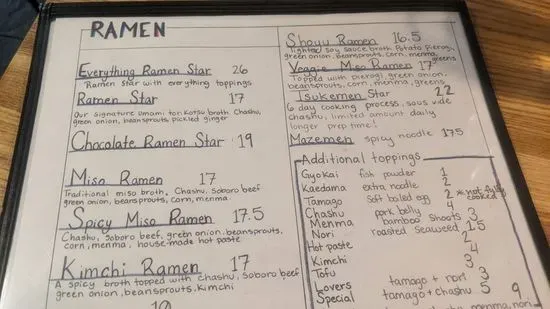 RAMEN
Everything Ramen Star 26
Ramen star with everything toppings
Ramen Star 17
Our signature umami tonkotsu broth. Chashu,
green onion, beansprouts, pickled ginger
Chocolate Ramen Star 19
Miso Ramen 17
Traditional miso broth, Chashu, Soboro beef
green onion, beansprouts, corn, menma
Spicy Miso Ramen 17.5
Chashu, Soboro beef, green onion, beansprouts,
corn, menma, house-made hot paste
Kimchi Ramen 17
A spicy broth topped with chashu, soboro beef
green onion, beansprouts, kimchi
Shoyu Ramen 16.5
lighter soy sauce broth. Potato Pierogi,
green onion, beansprouts, corn, menma,
greens
Veggie Miso Ramen 17
Topped with pierogi, green onion,
beansprouts, corn, menma, greens
Tsukemen Star 22
6 day cooking process, sous vide
chashu, limited amount daily
longer prep time!
Mazemen spicy noodle 17.5
Additional toppings
Gyokai fish powder 1
Kaedama extra noodle 2
Tamago soft boiled egg 2 *not fully cooked
Chashu pork belly 4
Menma bamboo shoots 3
Nori roasted seaweed 1.5
Hot paste 2
Kimchi 4
Tofu 3
Lovers tamago + nori 3
Special tamago + chashu 5
9
menma, nori